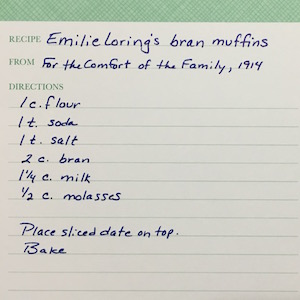 RECIPE Emilie Loring's bran muffins
FROM For the Comfort of the Family, 1914
DIRECTIONS
1 c. flour
1 t. soda
1 t. salt
2 c. bran
1¼ c. milk
½ c. molasses
Place sliced date on top.
Bake